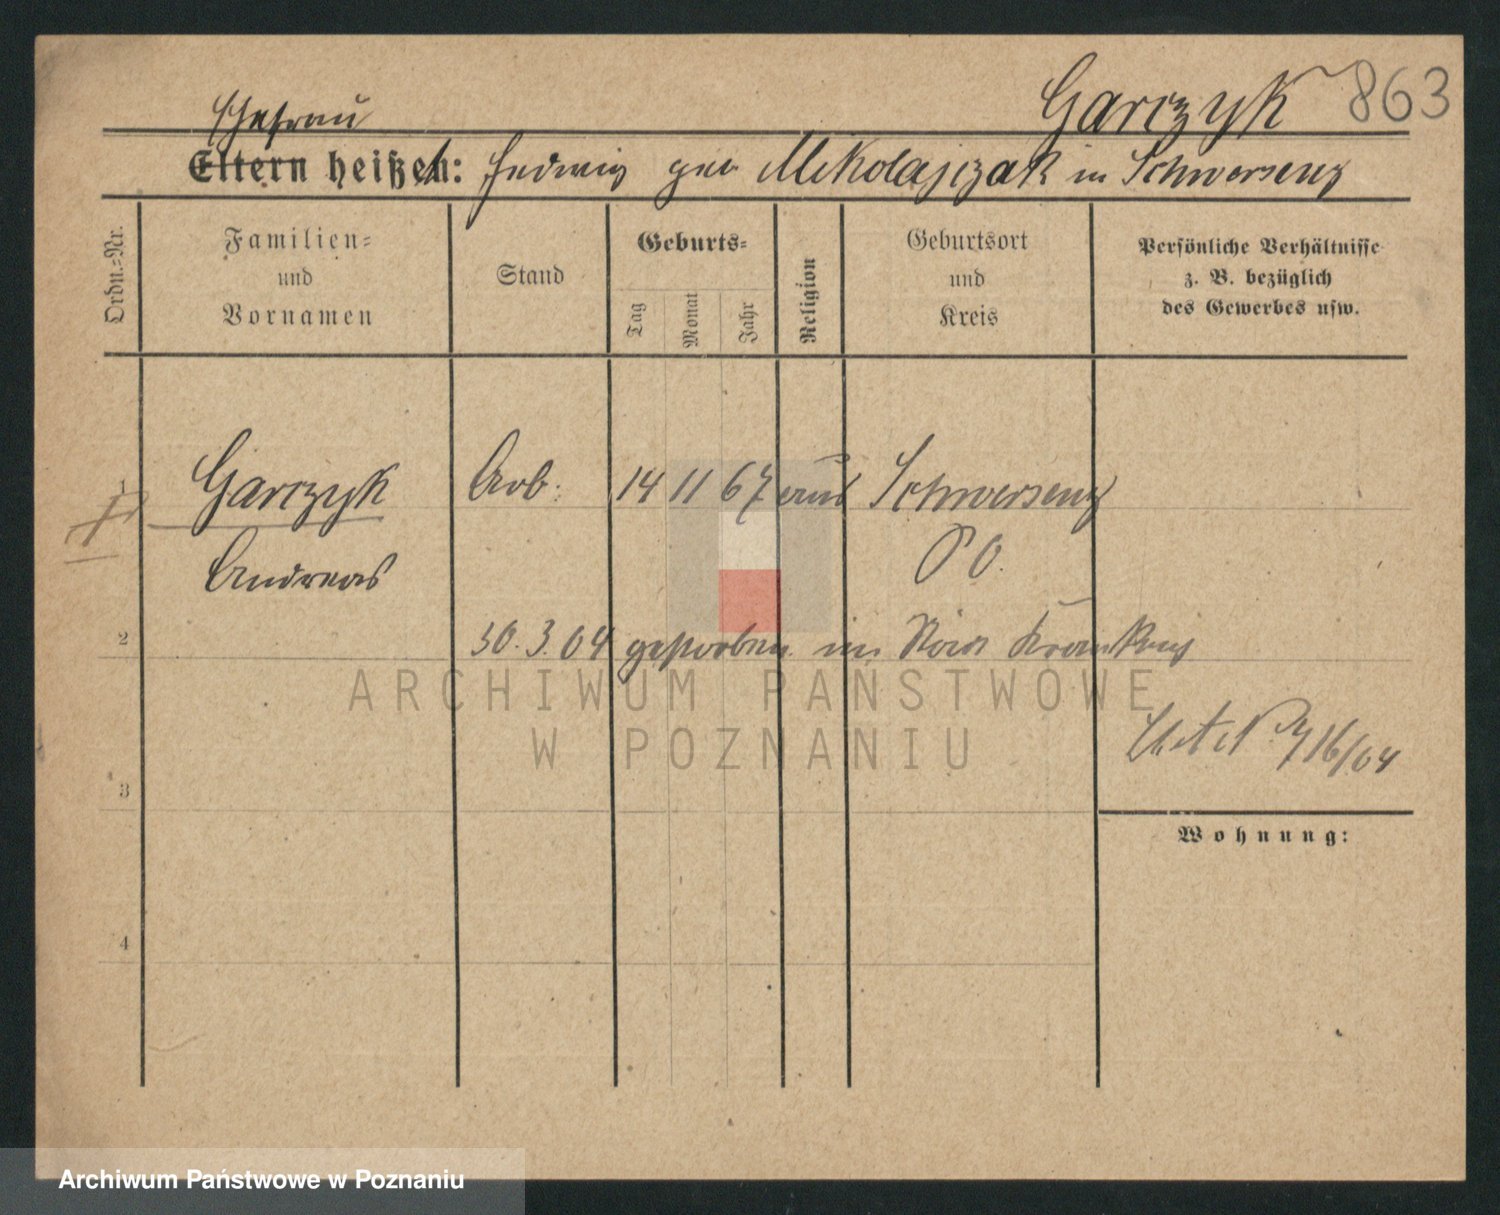 Garczyk 863
Ehefrau
Eltern heißen: Hedwig geb Mikolajczak in Schwersenz
Ordn.=Nr.
Familien=
und
Vornamen
Stand
Geburts=
Tag
Monat
Jahr
Religion
Geburtsort
und
Kreis
Persönliche Verhältnisse
z. B. bezüglich
des Gewerbes usw.
1
Garczyk Arb. 14 11 67 aus Schwersenz
Andreas P O.
2
30.3.04 gestorben im Krankhs
ARCHIWUM PAŃSTWOWE
W POZNANIU
716/04
3
Wohnung:
4
Archiwum Państwowe w Poznaniu